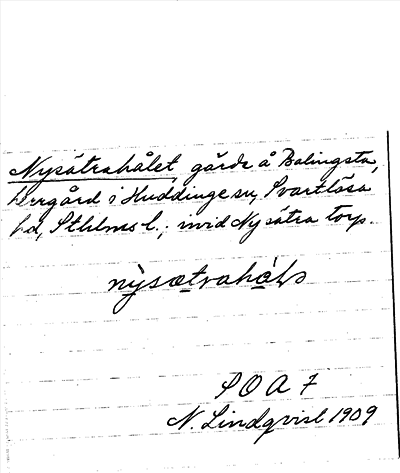 Nysätrahålet, gärde å Balingsta,
herrgård i Huddinge sn, Svartlösa
hd, Sthlms l.; invid Nysätra torp.
nysætrahålə
SOA 7
N. Lindqvist 1909